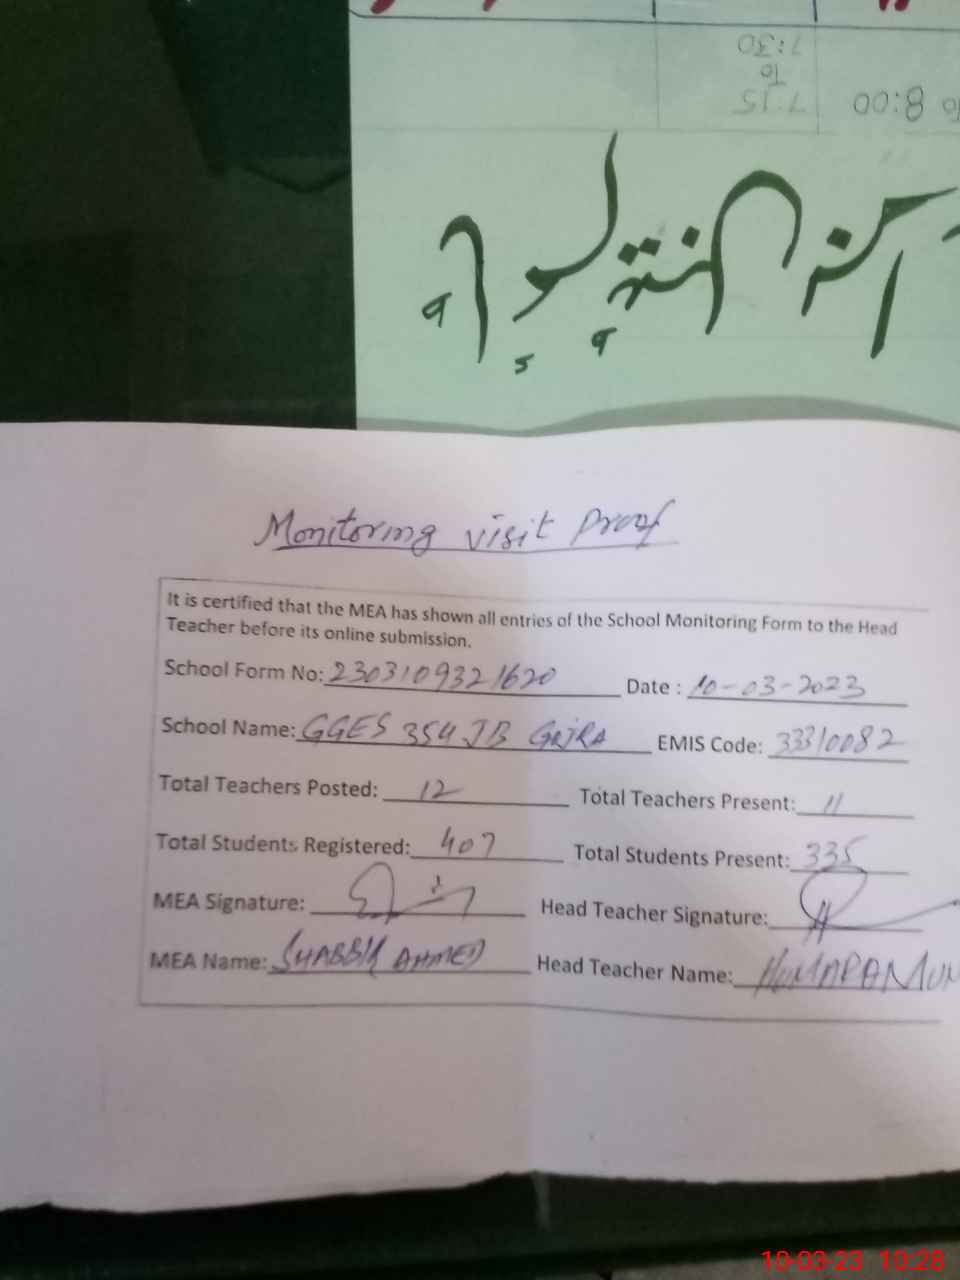 7:30
To
7:15
to 8:00
Monitoring visit Proof
It is certified that the MEA has shown all entries of the School Monitoring Form to the Head
Teacher before its online submission.
School Form No: 2303109321620 Date : 10-03-2023
School Name: GGES 354 JB GOJRA EMIS Code: 33310082
Total Teachers Posted: 12 Total Teachers Present: 11
Total Students Registered: 407 Total Students Present: 335
MEA Signature: Head Teacher Signature:
MEA Name: SHABBIR AHMED Head Teacher Name:
10-03-23 10:28